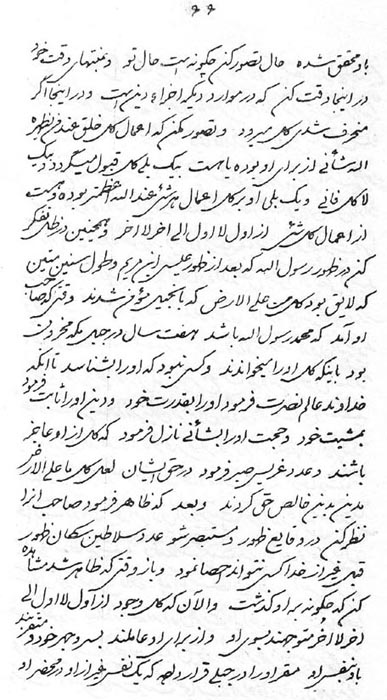 ۶۶
باو محقق شده حال تصور کن چگونه است حال تو و بمنتهای دقت خود
در اینجا دقت کن که در موارد دیگر اجزاء دین است و در اینجا اگر
منحرف شدی کل میرود و تصور مکن که اعمال کل خلق عند من یظهره
الله شأنی از برای او بوده یا هست بیک بلی کل قبول میگردد و بیک
لا کل فانی و یک بلی او بر کل اعمال هر شئی عند الله اعظمتر بوده و هست
از اعمال کل شئ از اول لا اول الی اخر لا آخر و همچنین در ظل تفکر
کن در ظهور رسول الله که بعد از ظهور عیسی ابن مریم و طول سنین
که لایق بود کل من علی الارض که بانجیل مؤمن شدند وقتی که صاحب
او آمد که محمد رسول الله باشد هفت سال در جبل مکه محزون
بود باینکه کل او را میخواندند و کسی نبود که او را بشناسد تا آنکه
خداوند عالم نصرت فرمود او را بقدرت خود و دین او را ثابت فرمود
بمشیت خود و حجت او را بشأنی نازل فرمود که کل از او عاجز
باشند و عدد غرس صبر فرمود در حق ایشان لعل کل ما علی الارض
مدین بدین خالص حق گردند و بعد که ظاهر فرمود صاحب انرا
نظر کن در وقایع ظهور و مستبصر شو عدد سلاطین سکان ظهور
قبل غیر از خدا کسی نتواند احصا نمود و باز وقتی که ظاهر شد مشاهده
کن که چگونه بر او گذشت والآن که کل وجود از اول لا اول الی
اخر لا اخر متوجهند بسوی او و از برای او عاملند بسر و جهر خود و
باو بنفس او مقر او را در جبلی قرار داده که یک نفس غیر از او در محضر او